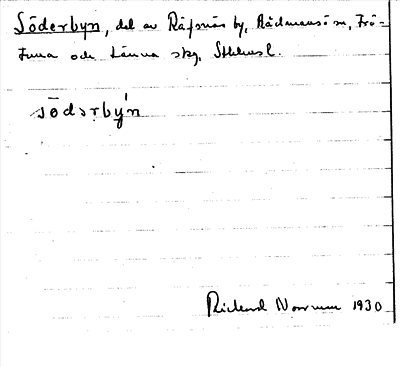 Söderbyn, del av Räfsnäs by, Rådmansö sn, Frö-
tuna och Länna skg, Sthlms l.
södərby'n
Rickard Norrman 1930